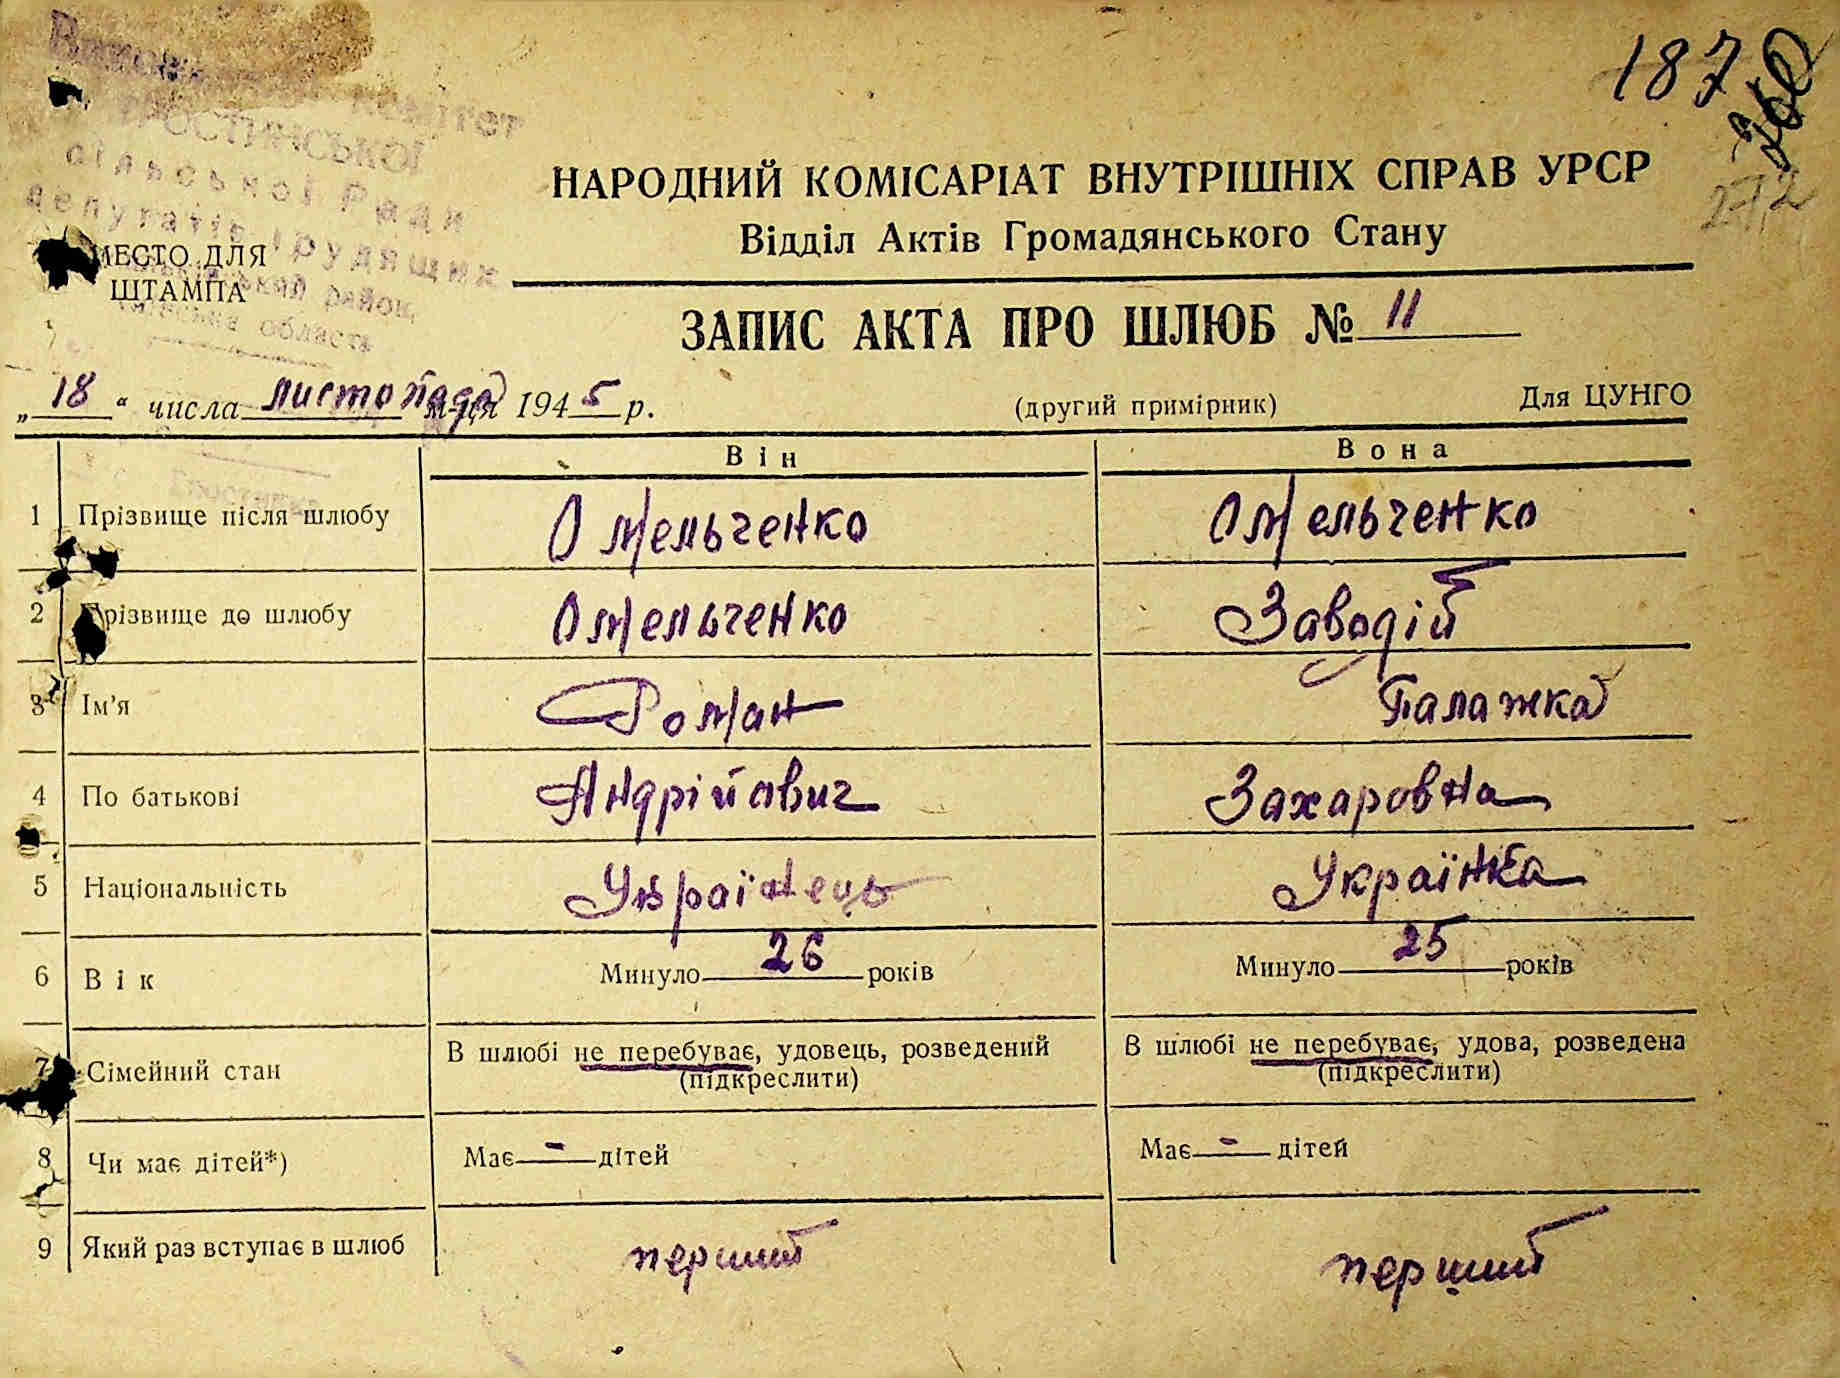 187
260
272
комітет
РОСТИНСЬКОЇ
сільської Ради
депутатів трудящих
район,
область
МЕСТО ДЛЯ
ШТАМПА
НАРОДНИЙ КОМІСАРІАТ ВНУТРІШНІХ СПРАВ УРСР
Відділ Актів Громадянського Стану
ЗАПИС АКТА ПРО ШЛЮБ № 11
„ 18 “ числа листопада м-ця 1945 р. (другий примірник) Для ЦУНГО
Він Вона
1 Прізвище після шлюбу Омельченко Омельченко
2 Прізвище до шлюбу Омельченко Заводій
3 Ім’я Роман Палажка
4 По батькові Андрійавич Захаровна
5 Національність Українець Українка
6 Вік Минуло 26 років Минуло 25 років
7 Сімейний стан В шлюбі не перебуває, удовець, розведений В шлюбі не перебуває, удова, розведена
(підкреслити) (підкреслити)
8 Чи має дітей*) Має - дітей Має - дітей
9 Який раз вступає в шлюб перший перший